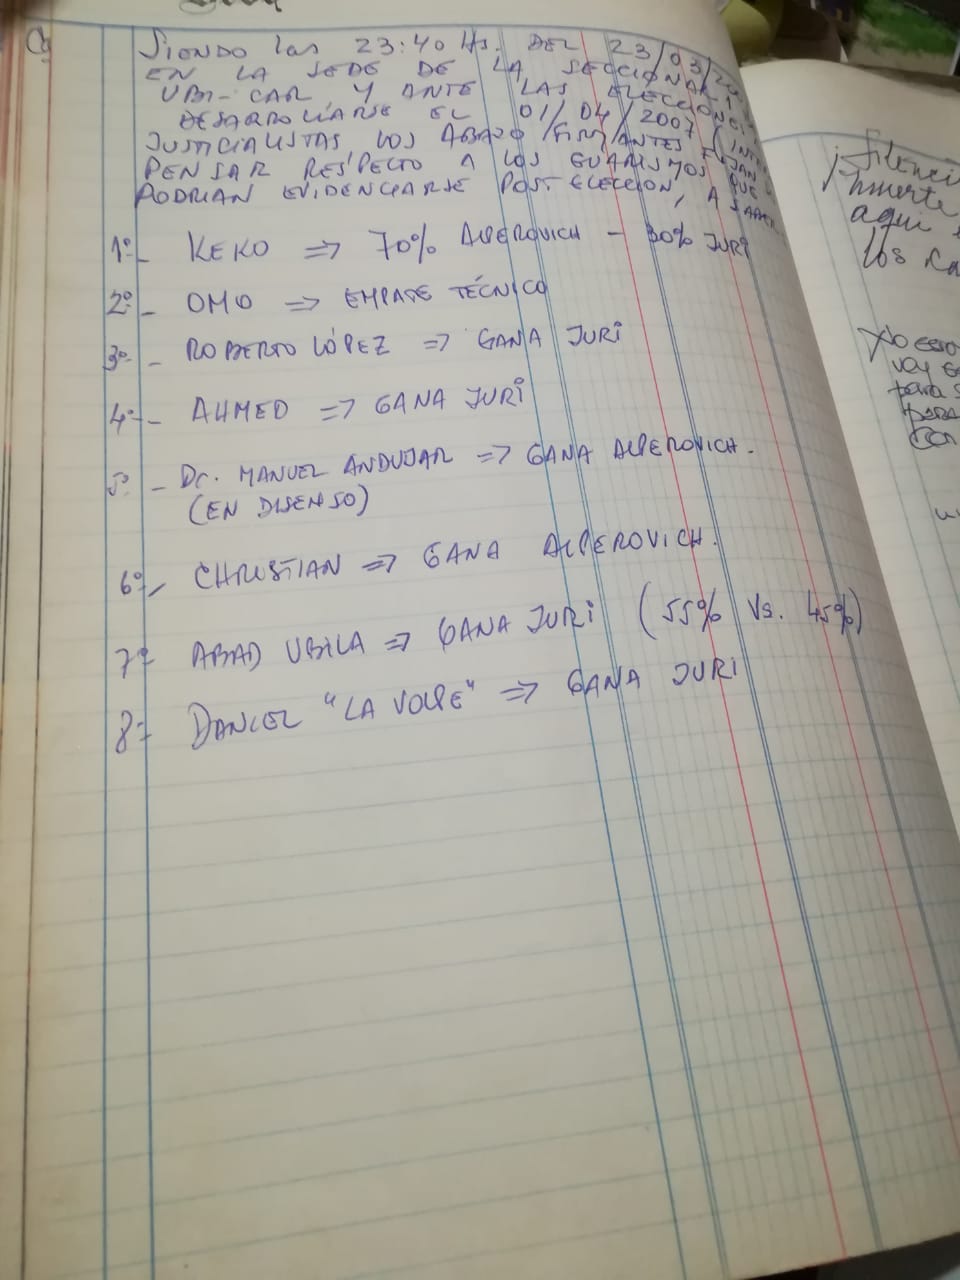 Siendo las 23:40 Hs. DEL 23/03/20
EN LA SEDE DE LA SECCIONAL 1
UBI-CAR Y ANTE LAS ELECCIONES
DESARROLLARSE EL 01/04/2007 (INT
JUSTICIALISTAS LOS ABAJO FIRMANTES FIJAN
PENSAR RESPECTO A LOS GUARISMOS QUE
PODRIAN EVIDENCIARSE POST ELECCION, A SABER
1º- KEKO => 70% ALPEROVICH - 30% JURI
2º- OMO => EMPATE TÉCNICO
3º- ROBERTO LÓPEZ => GANA JURI
4º- AHMED => GANA JURI
5º- Dr. MANUEL ANDUJAR => GANA ALPEROVICH.
(EN DISENSO)
6º- CHRISTIAN => GANA ALPEROVICH.
7º ABAD UBILA => GANA JURI (55% Vs. 45%)
8º DANIEL "LA VOLPE" => GANA JURI
¡Silenci
muerte
aqui
los
Yo
voy
para
para
con